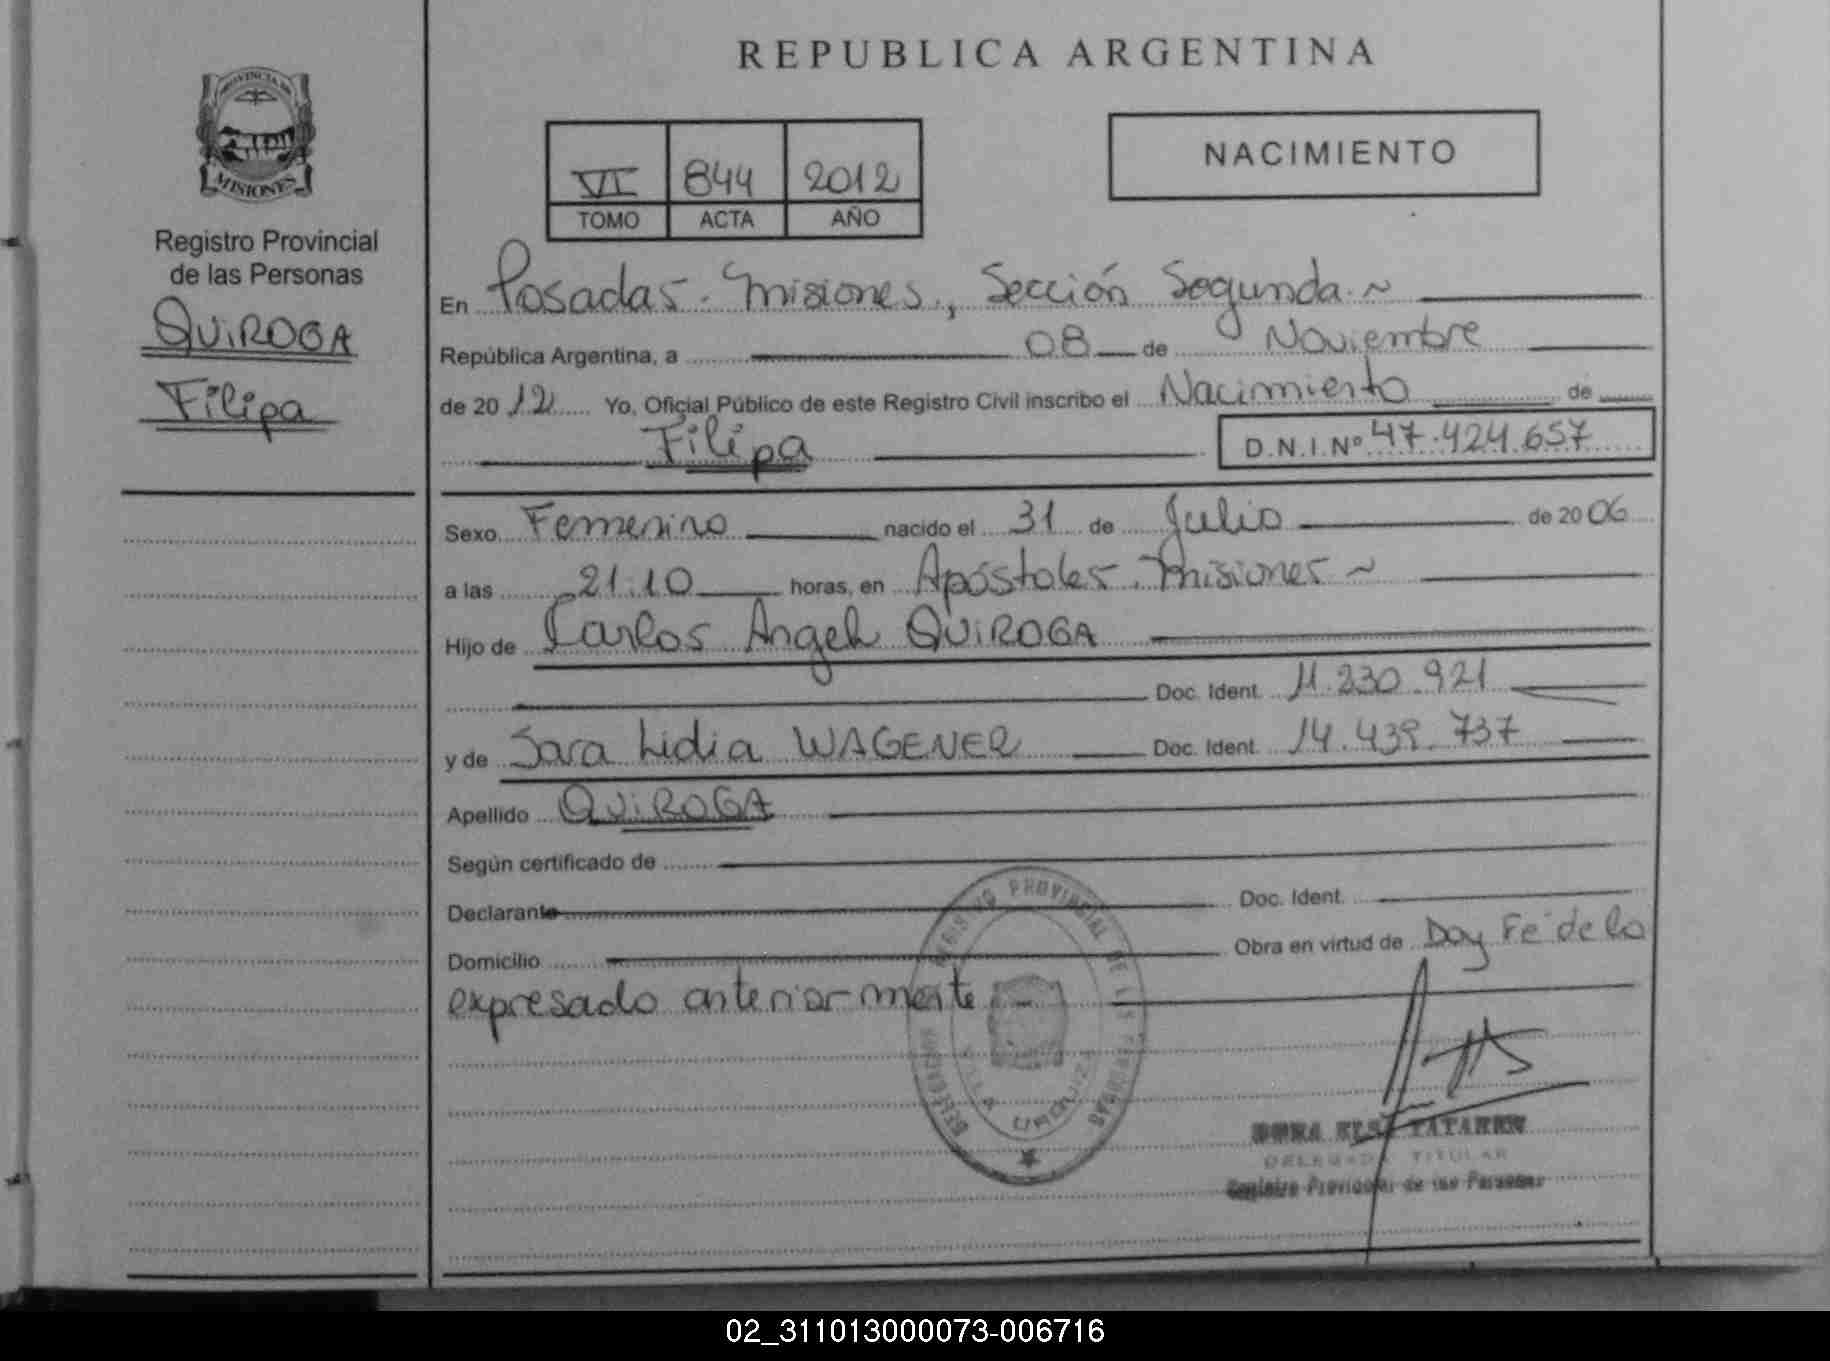 REPUBLICA ARGENTINA
PROVINCIA DE
MISIONES
Registro Provincial
de las Personas
QUIROGA
Filipa
VI 844 2012
TOMO ACTA AÑO
NACIMIENTO
En Posadas. Misiones, Sección Segunda.~
República Argentina, a 08 de Noviembre
de 2012 Yo, Oficial Público de este Registro Civil inscribo el Nacimiento de
Filipa D.N.I.Nº 47.424.657
Sexo Femenino nacido el 31 de Julio de 2006
a las 21:10 horas, en Apóstoles. Misiones ~
Hijo de Carlos Angel QUIROGA
Doc. Ident. 11.230.921
y de Sara Lidia WAGENER Doc. Ident. 14.439.737
Apellido QUIROGA
Según certificado de
Declarante Doc. Ident.
Domicilio Obra en virtud de Doy Fe de lo
expresado anteriormente
REGISTRO PROVINCIAL DE LAS PERSONAS
DELEGACION
VILLA URQUIZA
DELEGADA TITULAR
Registro Provincial de las Personas
02_311013000073-006716